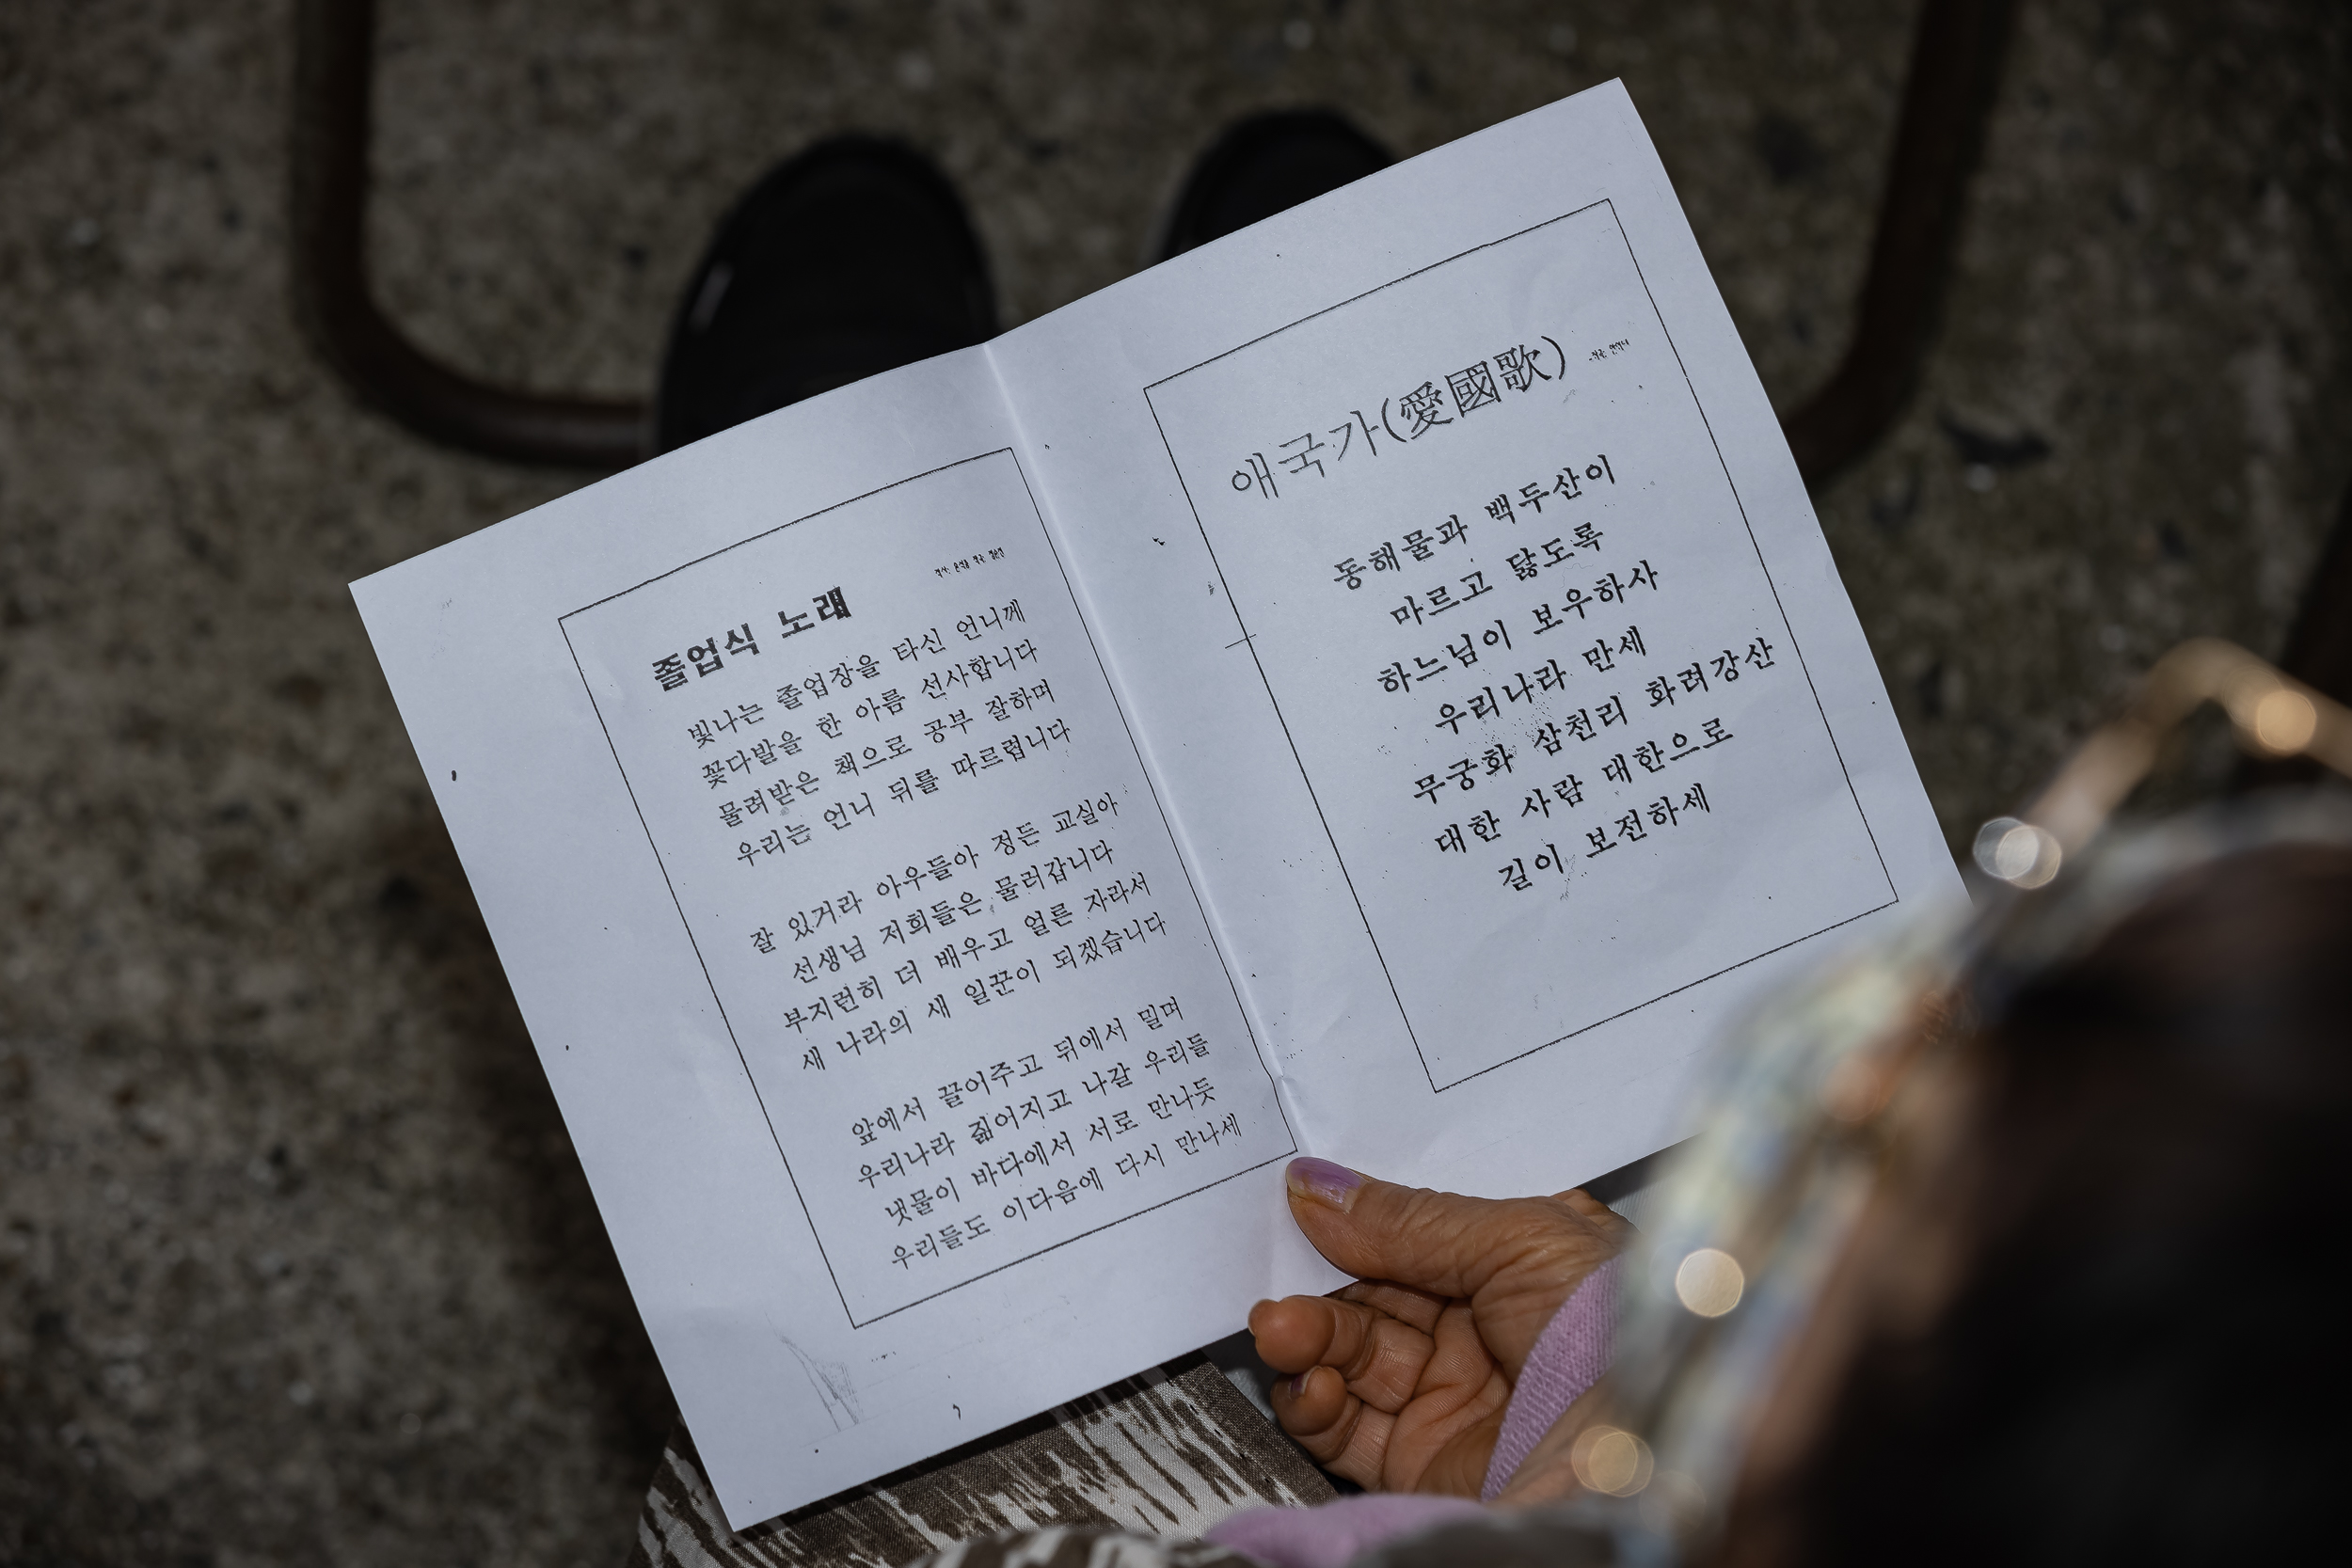 졸업식 노래
빛나는 졸업장을 타신 언니께
꽃다발을 한 아름 선사합니다
물려받은 책으로 공부 잘하며
우리는 언니 뒤를 따르렵니다
잘 있거라 아우들아 정든 교실아
선생님 저희들은 물러갑니다
부지런히 더 배우고 얼른 자라서
새 나라의 새 일꾼이 되겠습니다
앞에서 끌어주고 뒤에서 밀며
우리나라 짊어지고 나갈 우리들
냇물이 바다에서 서로 만나듯
우리들도 이다음에 다시 만나세
애국가(愛國歌)
동해물과 백두산이
마르고 닳도록
하느님이 보우하사
우리나라 만세
무궁화 삼천리 화려강산
대한 사람 대한으로
길이 보전하세